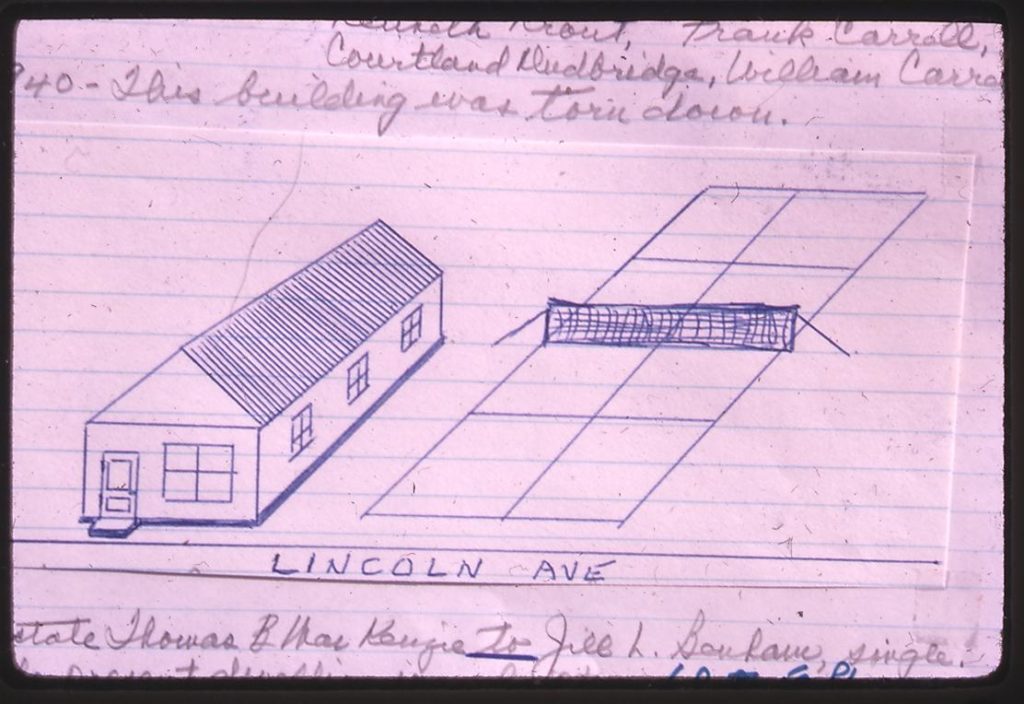 Frank Carroll,
Courtland Dudbridge, William Carro
940 - This building was torn down.
LINCOLN AVE
state Thomas B MacKenzie to Jill L. Benham, single.